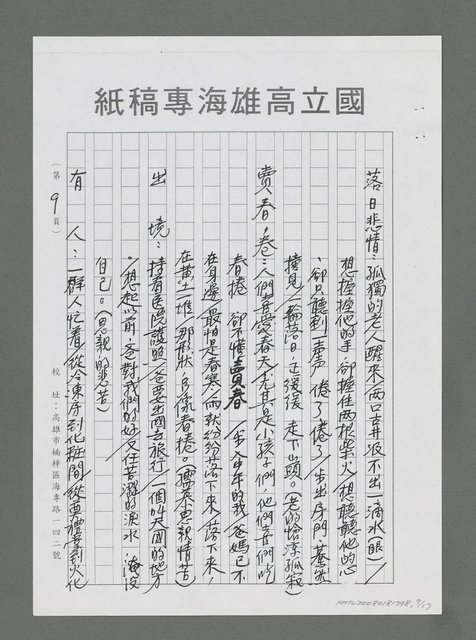 國立高雄海專稿紙
落日悲情：孤獨的老人醒來／兩口井汲不出一滴水（眼）／
想握握他的手／卻握住兩根柴火／想聽聽他的心
，卻只聽到一声声 倦了倦了／步出房門／蒼然
撞見／一輪落日／正緩緩 走下山頭。（老的恰涼孤寂）
賣春卷：人們喜愛春天／尤其是小孩子們，他們喜們吃
春捲 卻不懂賣春／步入中年的我／爸媽已不
在身邊／最怕是春寒／雨就紛紛落下來／落下來，
在黃土一堆／那形狀／乃像春捲。（掃墓思親情苦）
出 境：持著医院護照／爸要出國去旅行／一個叫天國的地方
，想起以前／爸對我們的好／又任苦澀的淚水 淹没
自己。（思親的悲苦）
有 人：一群人忙着／從冷凍库到化粧間／從奠禮堂到火化
（第9頁）
校址：高雄市楠梓區海專路一四二號
HMTL20080181798, 9/17